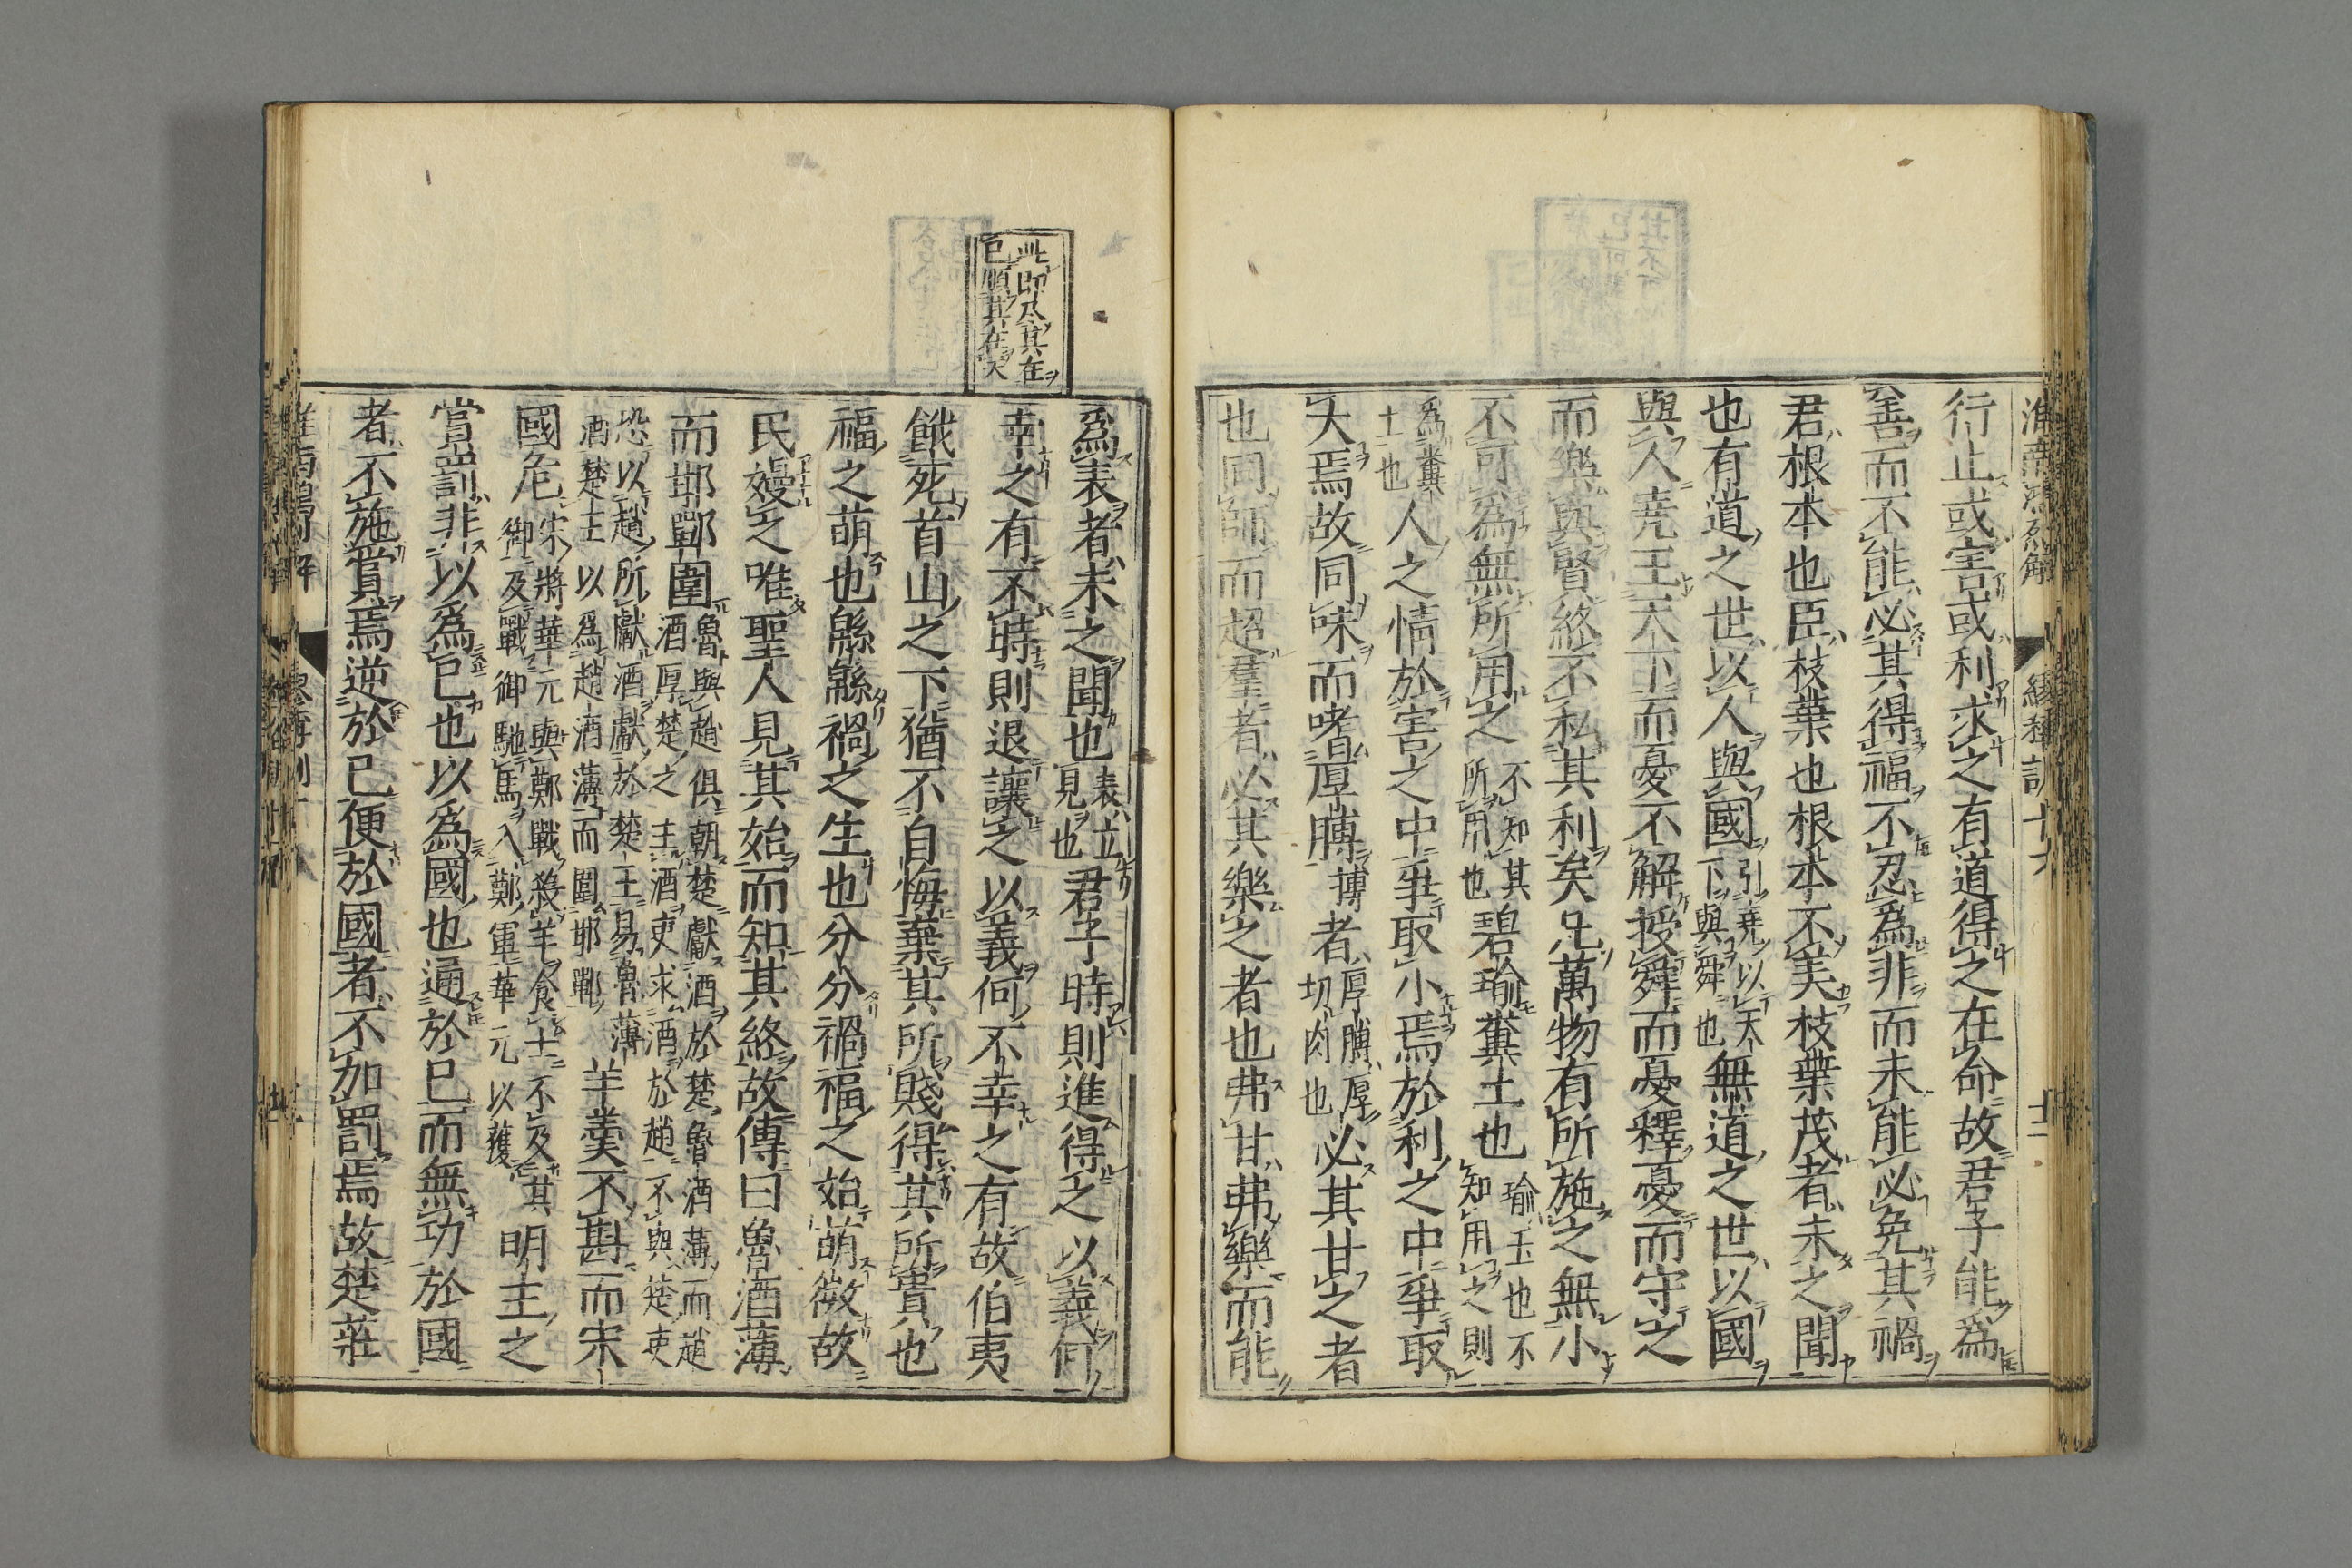 淮南鴻烈解 繆稱訓十六 十二
行止或害或利求之有道得之在命故君子能爲
善而不能必其得福不忍爲非而未能必免其禍
君根本也臣枝葉也根本不美枝葉茂者未之聞
也有道之世以人與國引堯以天下與舜也無道之世以國
與人堯王天下而憂不解授舜而憂釋憂而守之
而樂與賢終不私其利矣凡萬物有所施之無小
不可爲無所用之不知其所用也碧瑜糞土也瑜玉也不知用之則
爲糞土也人之情於害之中爭取小焉於利之中爭取
大焉故同味而嗜厚膊者厚膊厚切肉也必其甘之者
也同師而超羣者必其樂之者也弗甘弗樂而能
此即尽其在
已順其在天
爲表者未之聞也表立見也君子時則進得之以義何
幸之有不時則退讓之以義何不幸之有故伯夷
餓死首山之下猶不自悔棄其所賤得其所貴也
福之萌也緜緜禍之生也分分禍福之始萌微故
民嫚之唯聖人見其始而知其終故傳曰魯酒薄
而邯鄲圍魯與趙俱朝楚獻酒於楚魯酒薄而趙酒厚楚之主酒吏求酒於趙不與楚吏
恐以趙所獻酒獻於楚王易魯薄酒楚王以爲趙酒薄而圍邯鄲羊羹不斟而宋
國危宋將華元與鄭戰殺羊食士不及其御及戰御馳馬入鄭軍華元以獲明主之
賞罰非以爲已也以爲國也適於已而無功於國
者不施賞焉逆於已便於國者不加罰焉故楚莊